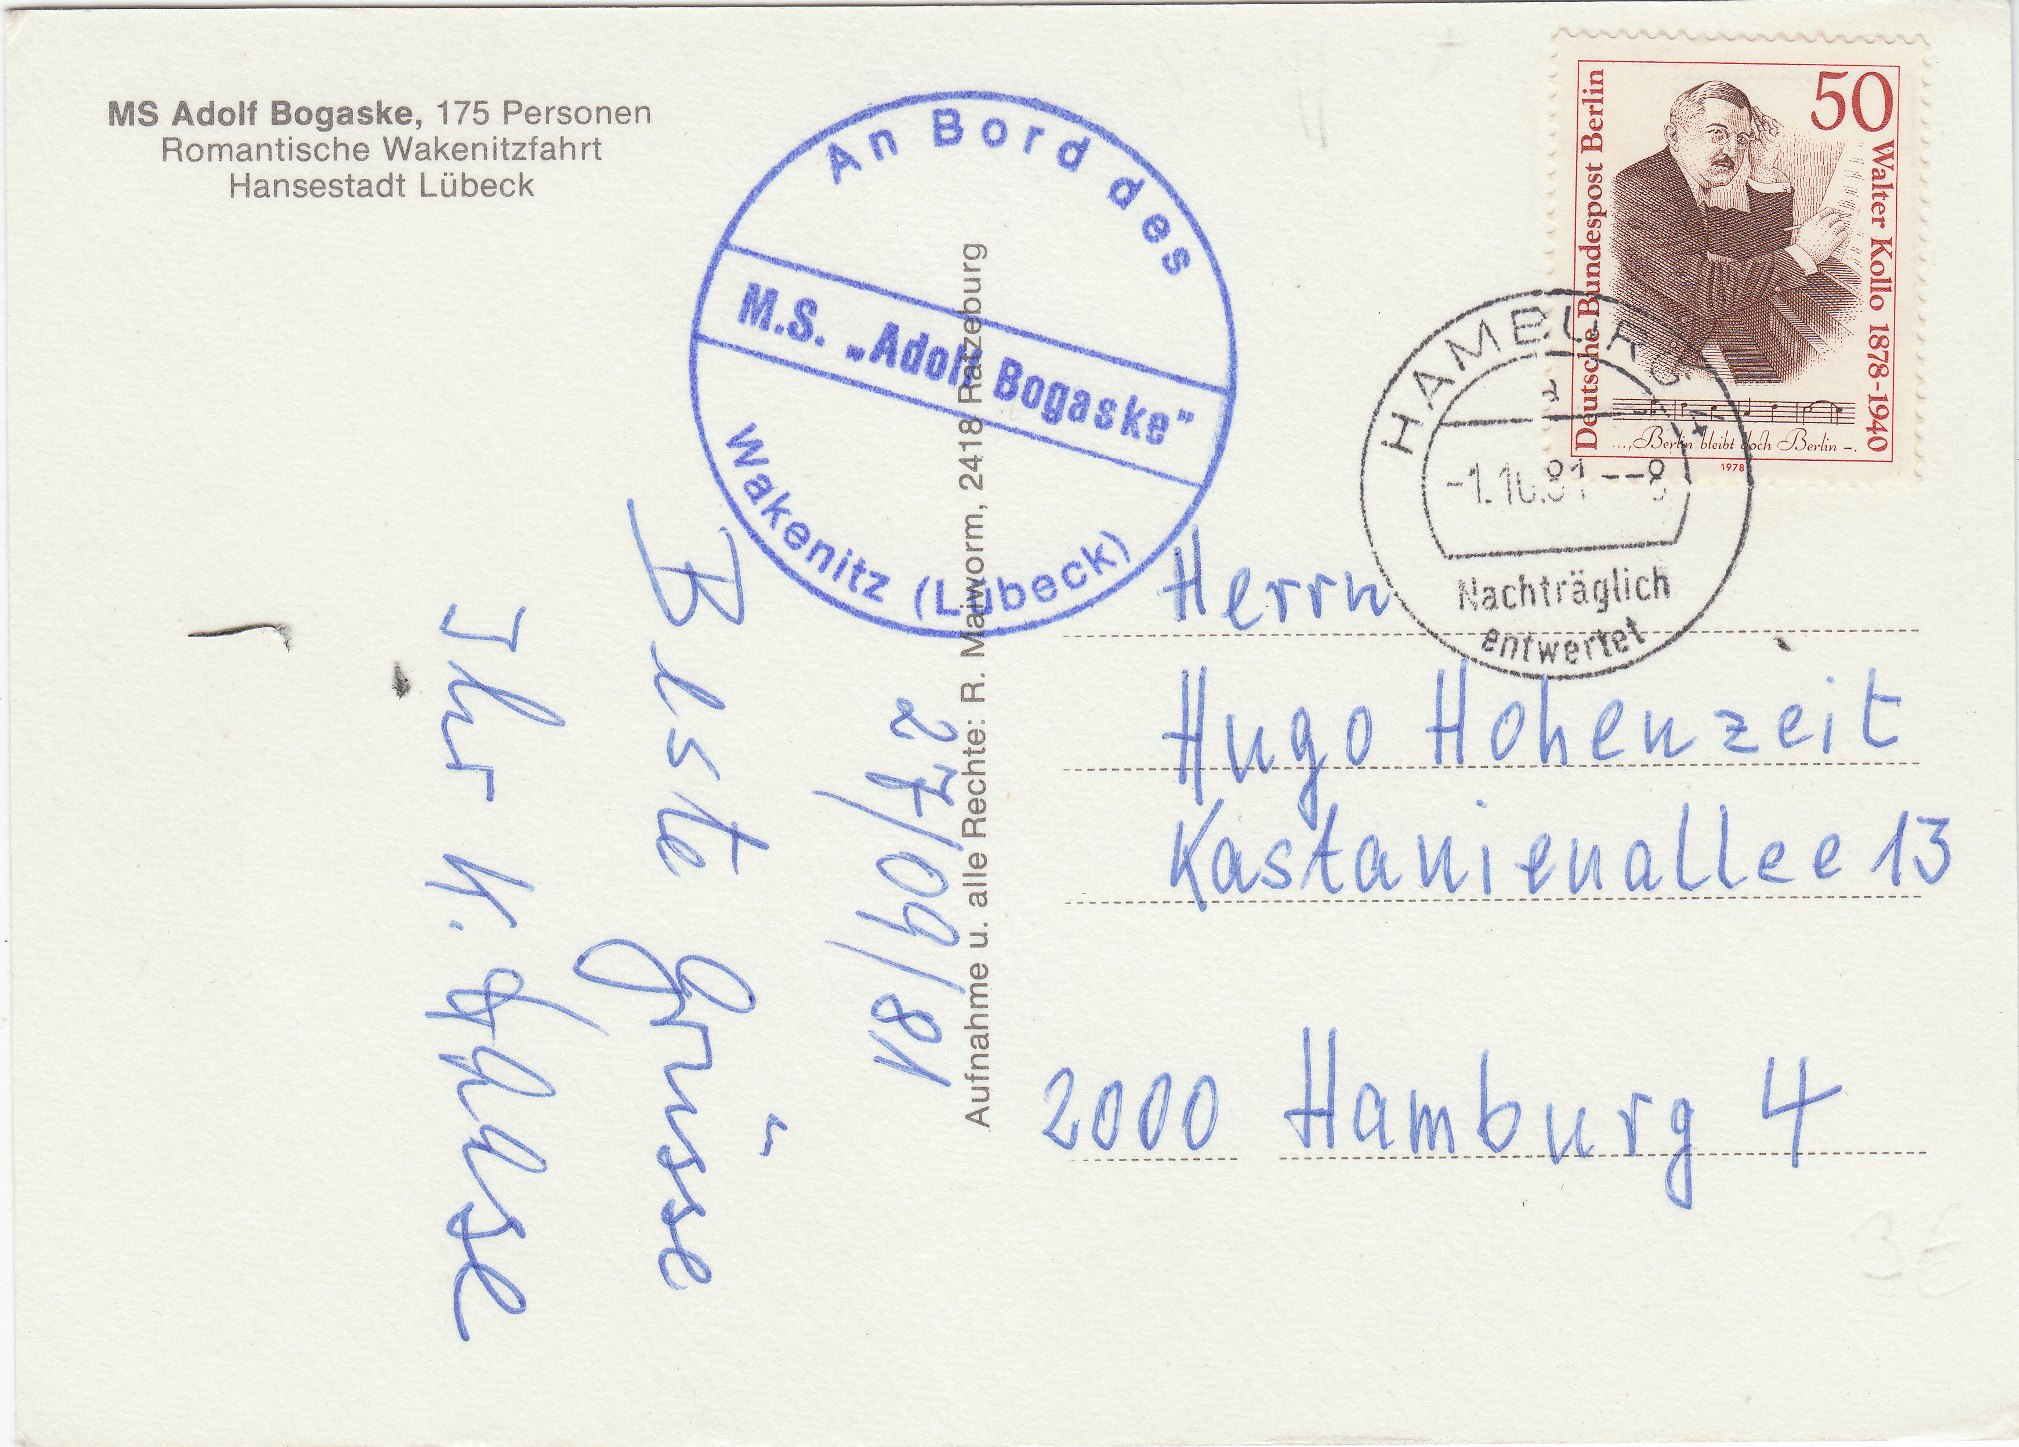 MS Adolf Bogaske, 175 Personen
Romantische Wakenitzfahrt
Hansestadt Lübeck
An Bord des
M.S. „Adolf Bogaske“
Wakenitz (Lübeck)
Aufnahme u. alle Rechte: R. Maiworm, 2418 Ratzeburg
Deutsche Bundespost Berlin
50
Walter Kollo 1878-1940
...„Berlin bleibt doch Berlin –.
1978
HAMBURG
-1.10.81--8
Nachträglich
entwertet
27/09/81
Beste Grüsse
Ihr K.
Herrn
Hugo Hohenzeit
Kastanienallee 13
2000 Hamburg 4